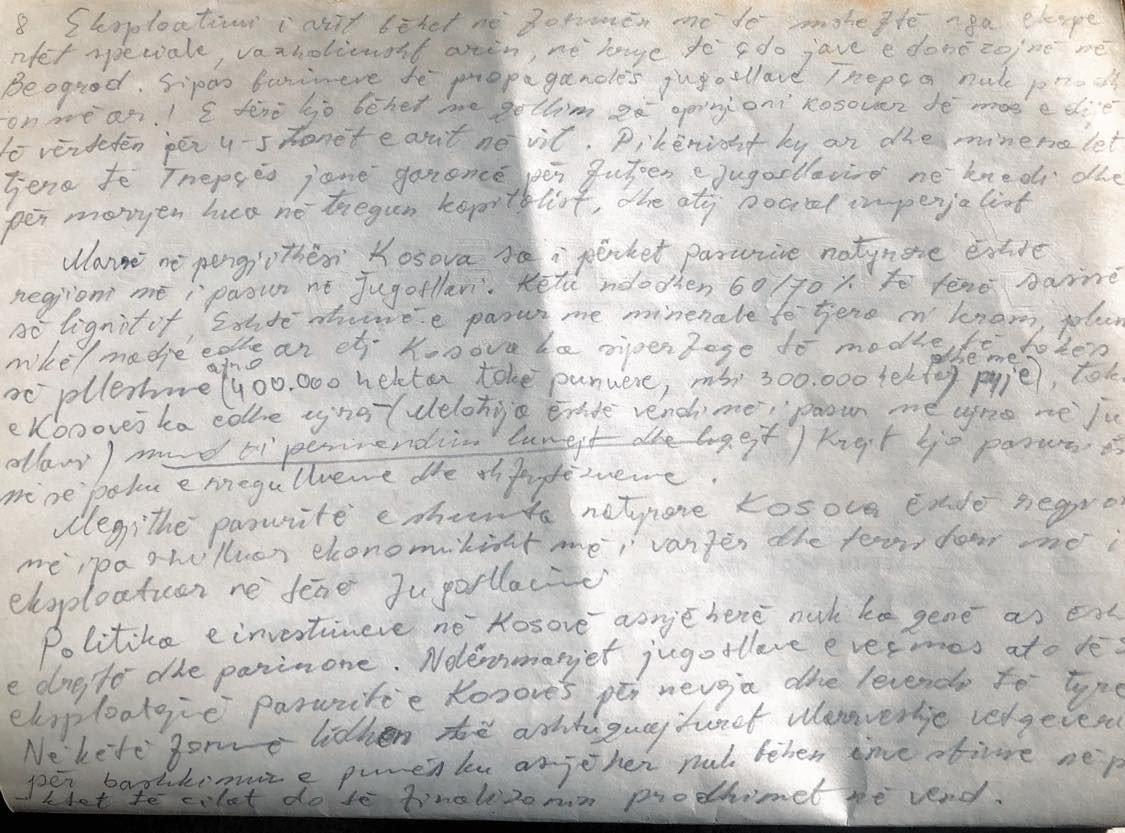 8 Eksploatimi i arit bëhet në formën më të msheftë nga ekspe
rtët speciale, vazhdimisht arin, në krye të çdo jave e dërgojnë në
Beograd. Sipas burimeve të propagandës jugosllave Trepça nuk prodh
on më ar! E tërë kjo bëhet me qëllim që opinjoni kosovar të mos e dijë
të vërtetën për 4-5 tonët e arit në vit. Pikërisht ky ar dhe mineralet
tjera të Trepçës janë garancë për futjen e Jugosllavisë në kredi dhe
për marrjen hua në tregun kapitalist, dhe atij social imperjalist
Marrë në pergjithësi Kosova sa i përket pasurive natyrore është
regjioni më i pasur në Jugosllavi. Këtu ndodhen 60/70% të tërë sasisë
së lignitit, Është shumë e pasur me minerale të tjera si krom, plum
nikël madje edhe ar etj Kosova ka sipërfaqe të madhe të tokës
së plleshme (400.000 hektar tokë punuese, mbi 300.000 hektar pyje), tok
dhe me
e Kosovës ka edhe ujna (Metohija është vendi më i pasur me ujna në Ju
sllavi) mund ti permendim lumejt dhe liqejt) Krejt kjo pasuri
më së paku e rregullueme dhe shfrytëzueme.
Megjithë pasuritë e shumta natyrore Kosova është regjio
më i pa zhvilluar ekonomikisht më i varfër dhe territori më i
eksploatuar në tërë Jugosllavinë
Politika e investimeve në Kosovë asnjëherë nuk ka qenë as ësh
e drejtë dhe parimore. Ndërrmarrjet jugosllave e veçmas ato të S
eksploatojnë pasuritë e Kosovës për nevoja dhe leverdi të tyre
Në këtë formë lidhen të ashtuquajturat Marrveshje vetqeveri
për bashkimin e punës ku asnjëher nuk bëhen investime në p
ktet të cilat do të finalizonin prodhimet në vend.